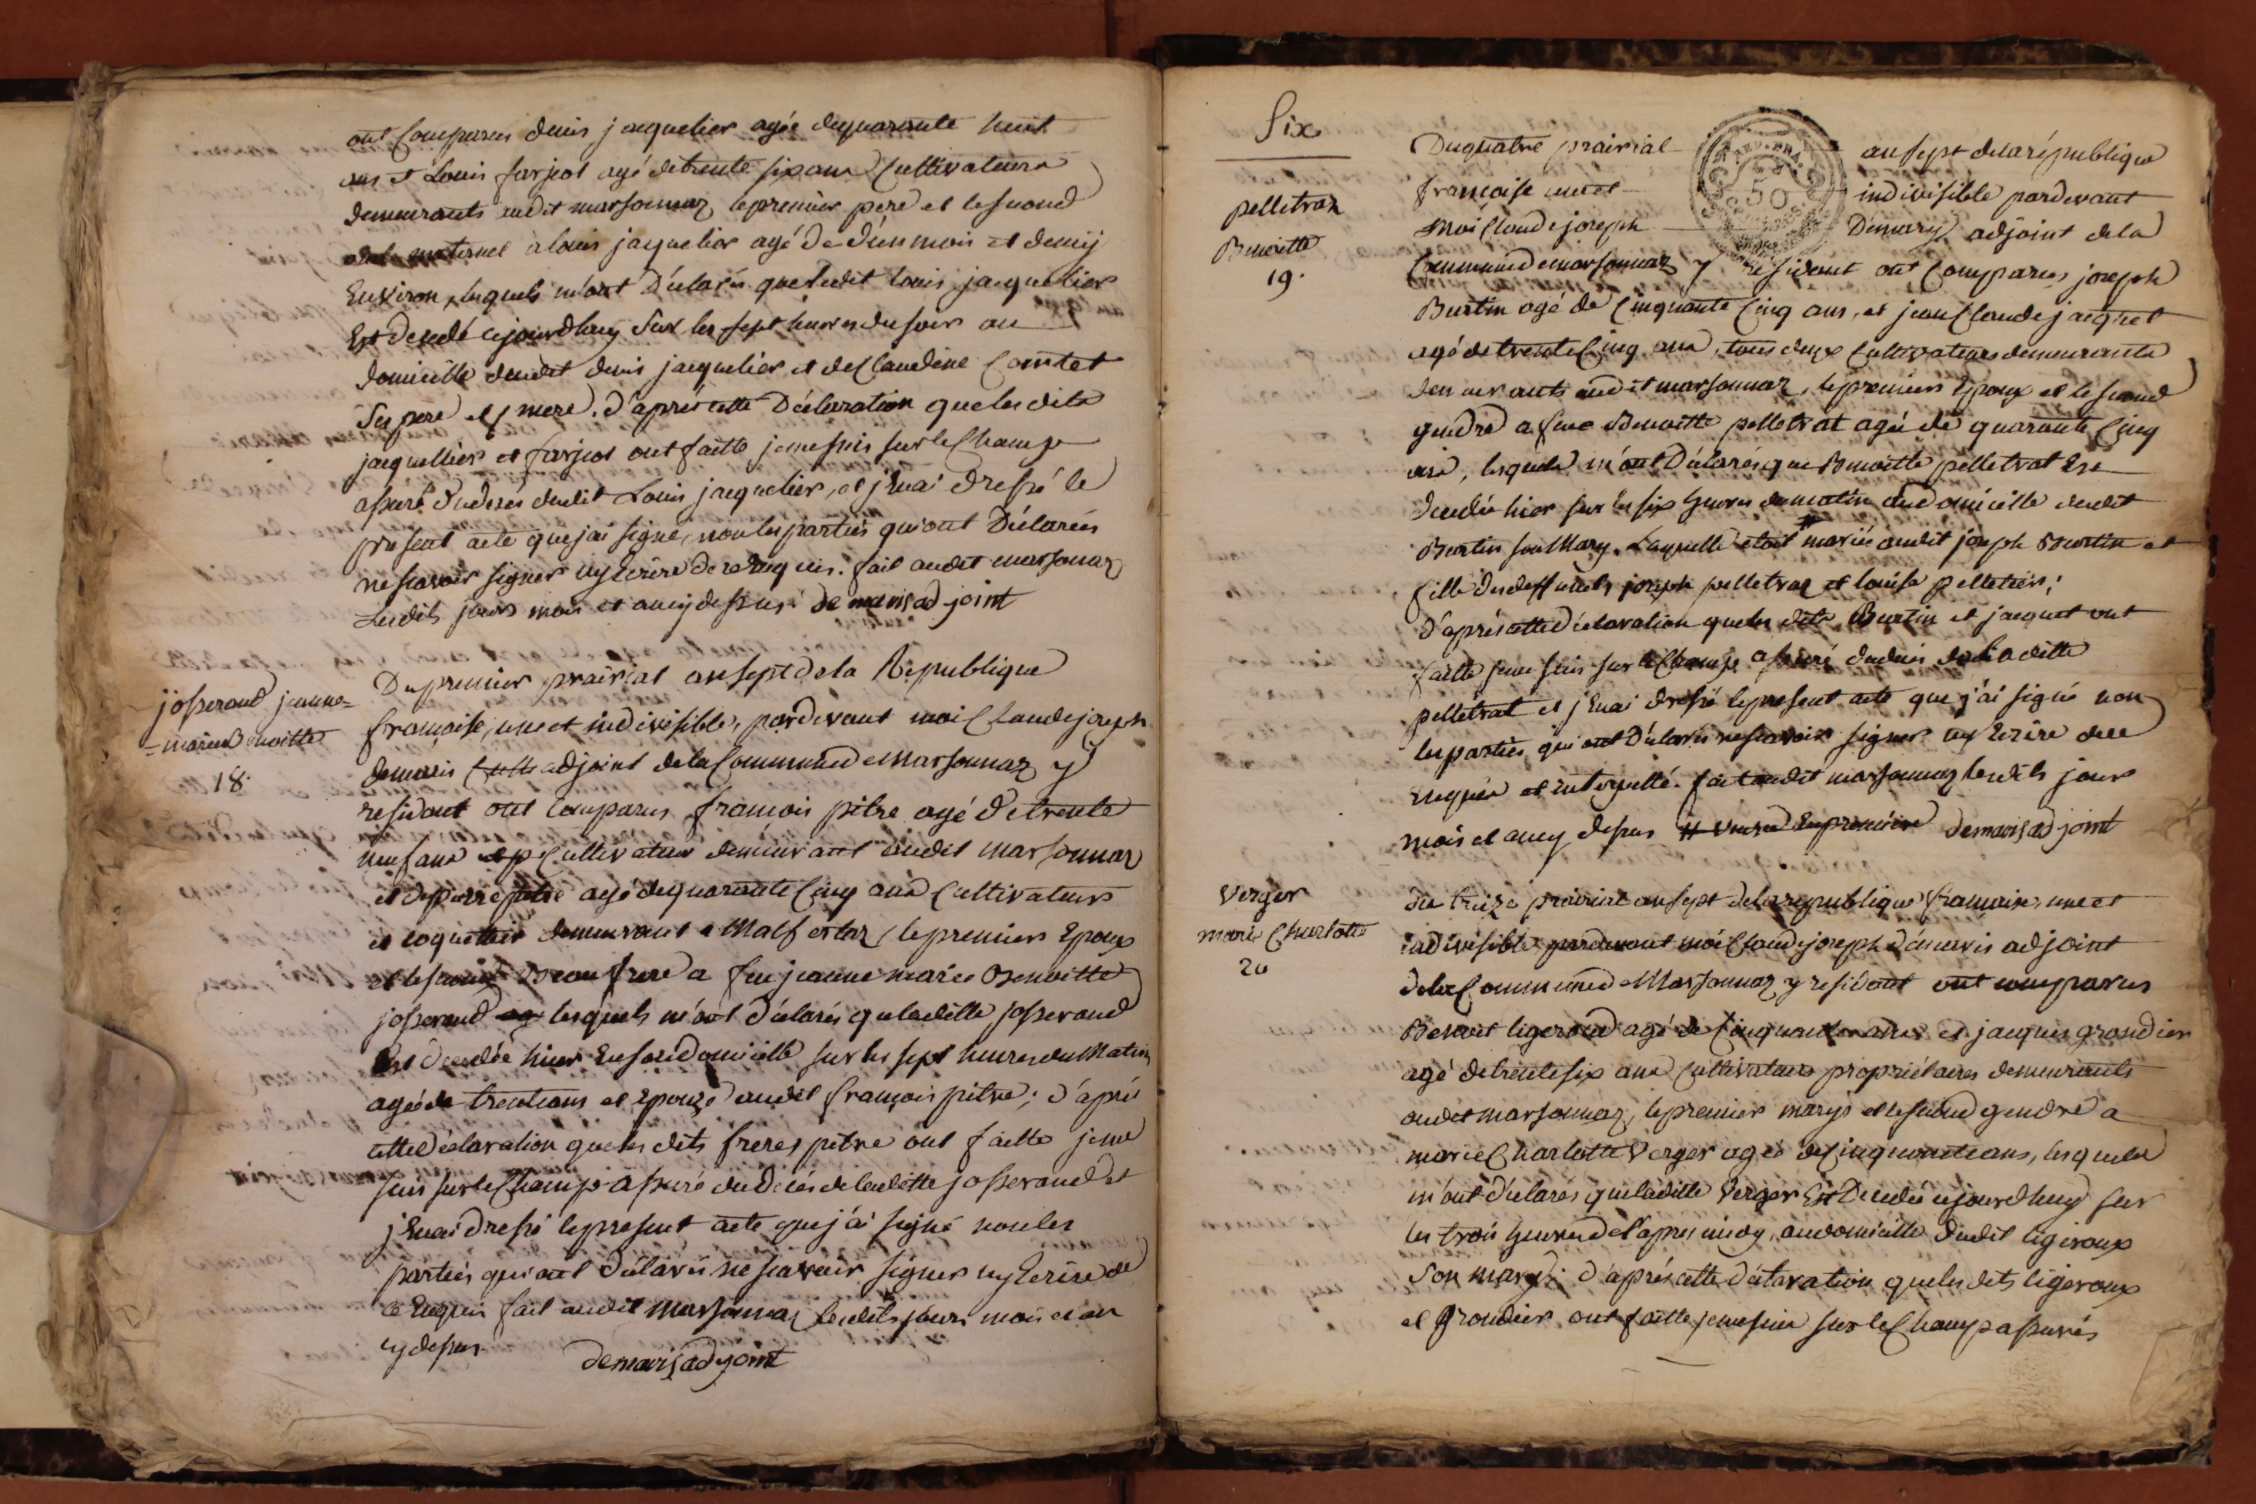 ont Comparus denis jacquelier agée dequarante huit
ans et Louis farjeot agé detrente six ans Cultivateurs
demeurants audit marsonnaz le premier pere et le second
maternel a louis jacquelier agé de d'un mois et demij
Environ, lesquels m'ont Déclarés que ledit louis jacquelier
Est decedé cejourdhuy Sur les sept heures du soir au
domicille dudit denis jacquelier et de Claudine Comtet
Ses pere et mere. d'après cette Déclaration que les dits
jacquellier et farjeot ont faitte jeme suis sur le Champ
assuré du deces dudit Louis jacquelier, et j'enai dressé le
present acte que jai signé, non les parties qui ont Déclarées
ne scavoir signer ny Ecrire de ce Enquis. fait audit marsonnaz
Lesdits jours mois et an cy dessus. demaris adjoint
josserand jeanne=
=marie Benoitte
18.
Du premier prairial an sept de la Republique
francoise, une et indivisible, pardevant moi Claude joseph
demaris adjoint de la Commune de Marsonnaz y
residant ont comparus francois pitre agé de trente
neuf ans Cultivateur demeurant audit marsonnaz
et pierre pitre agé dequarante Cinq ans Cultivateur
et coquetier demeurant a Malfortaz, le premier Epoux
et le second Beau frere a fue jeanne marie Benoitte
josserand lesquels m'ont Déclarés que laditte josserand
Est decedée hier En son domicille sur les sept heures du Matin
agée de trente ans et Epouze audit françois pitre; d'après
cette Déclaration que les dits freres pitre ont faitte jeme
suis sur le Champ assuré du Deces de laditte josserand et
j'enai dressé le present acte que j'ai signé non les
parties qui ont Déclarés ne scavoir signer ny Ecrire de
ce Enquis fait audit marsonnaz lesdits jours mois et an
cy dessus. demaris adjoint
Six
pelletraz
Benoitte
19.
Du quatre prairial an sept de la république
francoise une et indivisible pardevant
Moi Claude joseph Demarys adjoint de la
Commune de marsonnaz y residant ont Comparus joseph
Burtin agé de Cinquante Cinq ans, et jean Claude jacquet
agé de trente Cinq ans, tous deux Cultivateurs demeurants
demeurants audit marsonnaz, le premier Epoux et le second
gendre a fue Benoitte pelletrat agée de quarante Cinq
ans, lesquels m'ont Déclarés que Benoitte pelletrat Est
decedée hier sur les six heures du matin au domicille dudit
Burtin son Mary. Laquelle etoit mariée audit joseph Burtin et
fille des deffunts joseph pelletraz et louise pelletier;
D'après cette Déclaration que les dits Burtin et jacquet ont
faitte jeme suis sur le Champ assuré du deces de laditte
pelletrat et j'enai dressé le present acte que j'ai signé non
les parties qui ont Déclarés ne scavoir signer ny Ecrire de ce
Enquis et interpellé. fait audit marsonnaz lesdits jours
mois et an cy dessus demaris adjoint
Verger
marie Charlotte
20
du treize prairial an sept de la republique francaise, une et
indivisible pardevant moi Claude joseph Demaris adjoint
de la Commune de Marsonnaz y residant ont comparus
Benoit ligeroud agé de Cinquante ans et jacques grandier
agé de trente six ans Cultivateurs propriétaires demeurants
audit marsonnaz, le premier marys et le second gendre a
marie Charlotte Verger agée de Cinquante ans, lesquels
m'ont Déclarés que laditte Verger Est Decedée cejourdhuy sur
les trois heures de l'apres midy, au domicille dudit ligeroux
Son mary; d'après cette Déclaration que les dits ligeroux
et Grandier ont faitte jeme suis sur le Champ assurés